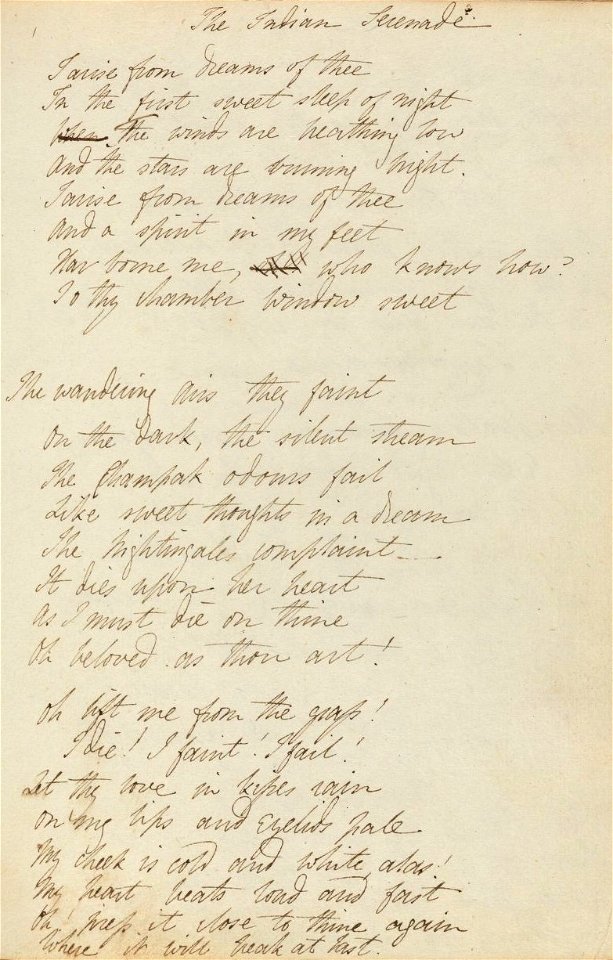 The Indian Serenade
I arise from dreams of thee
In the first sweet sleep of night
When The winds are breathing low
And the stars are burning bright.
I arise from dreams of thee
And a spirit in my feet
Has borne me, who knows how?
To thy chamber window sweet
The wandering airs they faint
On the dark, the silent stream
The Champak odours fail
Like sweet thoughts in a dream
The Nightingales complaint —
It dies upon her heart
As I must die on thine
Oh beloved as thou art!
Oh lift me from the grass!
I die! I faint! I fail!
Let thy love in kisses rain
On my lips and eyelids pale.
My cheek is cold and white, alas!
My heart beats loud and fast
Oh! press it close to thine again
Where it will break at last.